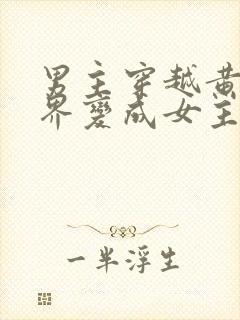 男主穿越黄
界變成女主
一半浮生